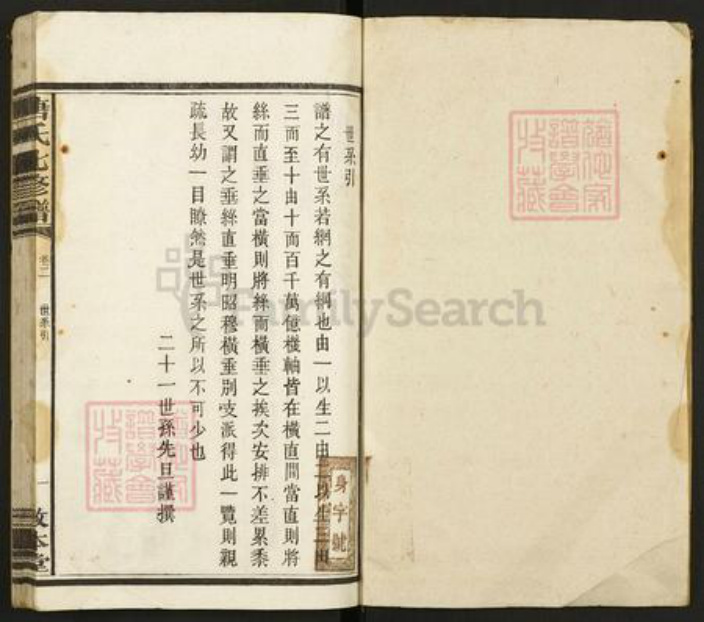 世系引
譜之有世系若網之有綱也由一以生二由二以生三由
三而至十由十而百千萬億機軸皆在橫直間當直則將
絲而直垂之當橫則將絲而橫垂之挨次安排不差累黍
故又謂之垂絲直垂明昭穆橫垂別支派得此一覽則親
疏長幼一目瞭然是世系之所以不可少也
二十一世孫先旦謹撰
氏七修譜
卷二
世系引
一
敦本堂
身字號
譜學會
收藏
譜學會
收藏
FamilySearch